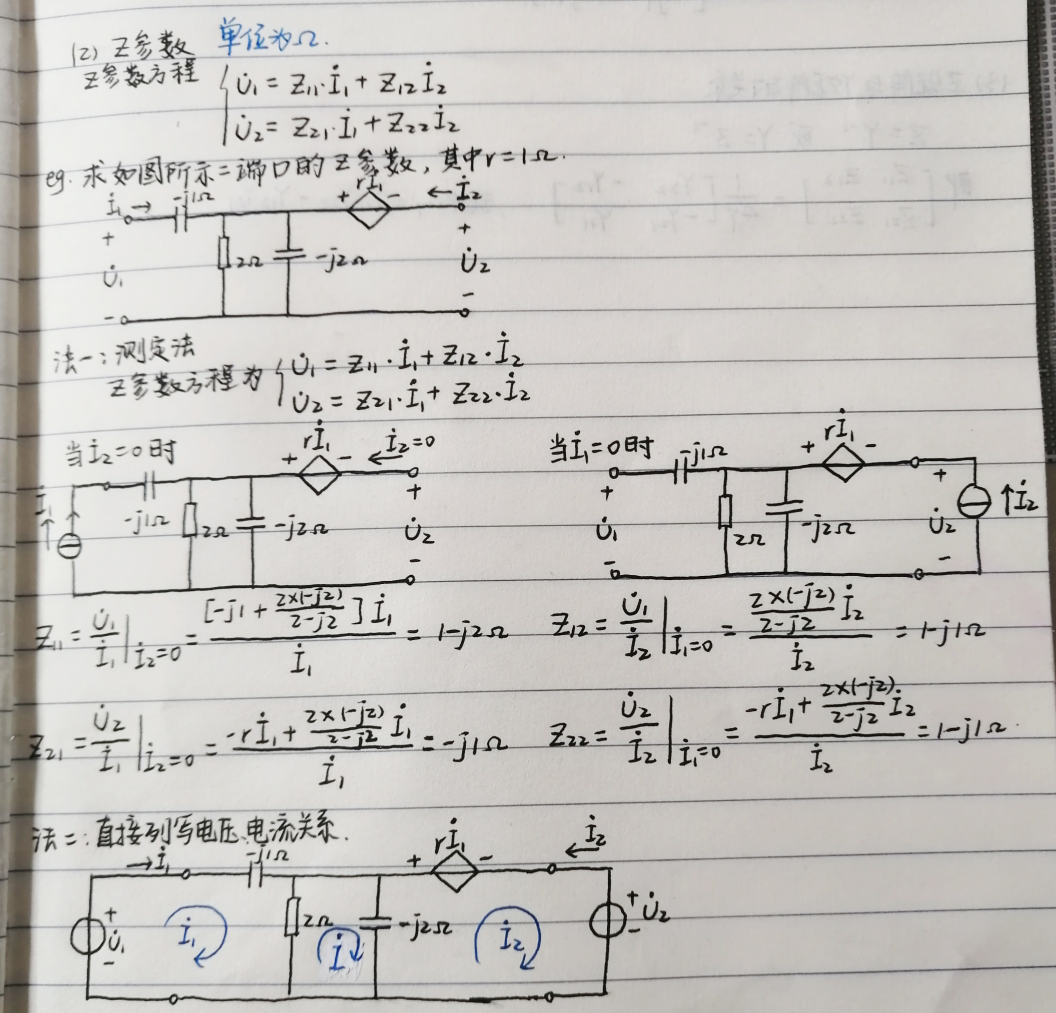 (2) Z参数 单位为Ω.
Z参数方程 { U̇₁ = Z₁₁·İ₁ + Z₁₂İ₂
U̇₂ = Z₂₁·İ₁ + Z₂₂İ₂
eg. 求如图所示二端口的Z参数, 其中r=1Ω.
İ₁ → -j1Ω + rİ₁ - ← İ₂
+ U̇₁ - 2Ω -j2Ω + U̇₂ -
法一: 测定法
Z参数方程为 { U̇₁ = Z₁₁·İ₁ + Z₁₂·İ₂
U̇₂ = Z₂₁·İ₁ + Z₂₂·İ₂
当İ₂=0时 + rİ₁ - İ₂=0
İ₁ -j1Ω 2Ω -j2Ω + U̇₂ -
当İ₁=0时 -j1Ω + rİ₁ -
+ U̇₁ - 2Ω -j2Ω + U̇₂ - ↑İ₂
Z₁₁ = U̇₁/İ₁ |İ₂=0 = [-j1 + 2×(-j2)/(2-j2)]İ₁ / İ₁ = 1-j2Ω
Z₁₂ = U̇₁/İ₂ |İ₁=0 = 2×(-j2)/(2-j2) İ₂ / İ₂ = 1-j1Ω
Z₂₁ = U̇₂/İ₁ |İ₂=0 = -rİ₁ + 2×(-j2)/(2-j2) İ₁ / İ₁ = -j1Ω
Z₂₂ = U̇₂/İ₂ |İ₁=0 = -rİ₁ + 2×(-j2)/(2-j2) İ₂ / İ₂ = 1-j1Ω.
法二: 直接列写电压、电流关系.
→İ₁ -j1Ω + rİ₁ - ← İ₂
+ U̇₁ - İ₁ 2Ω İ -j2Ω İ₂ + U̇₂ -